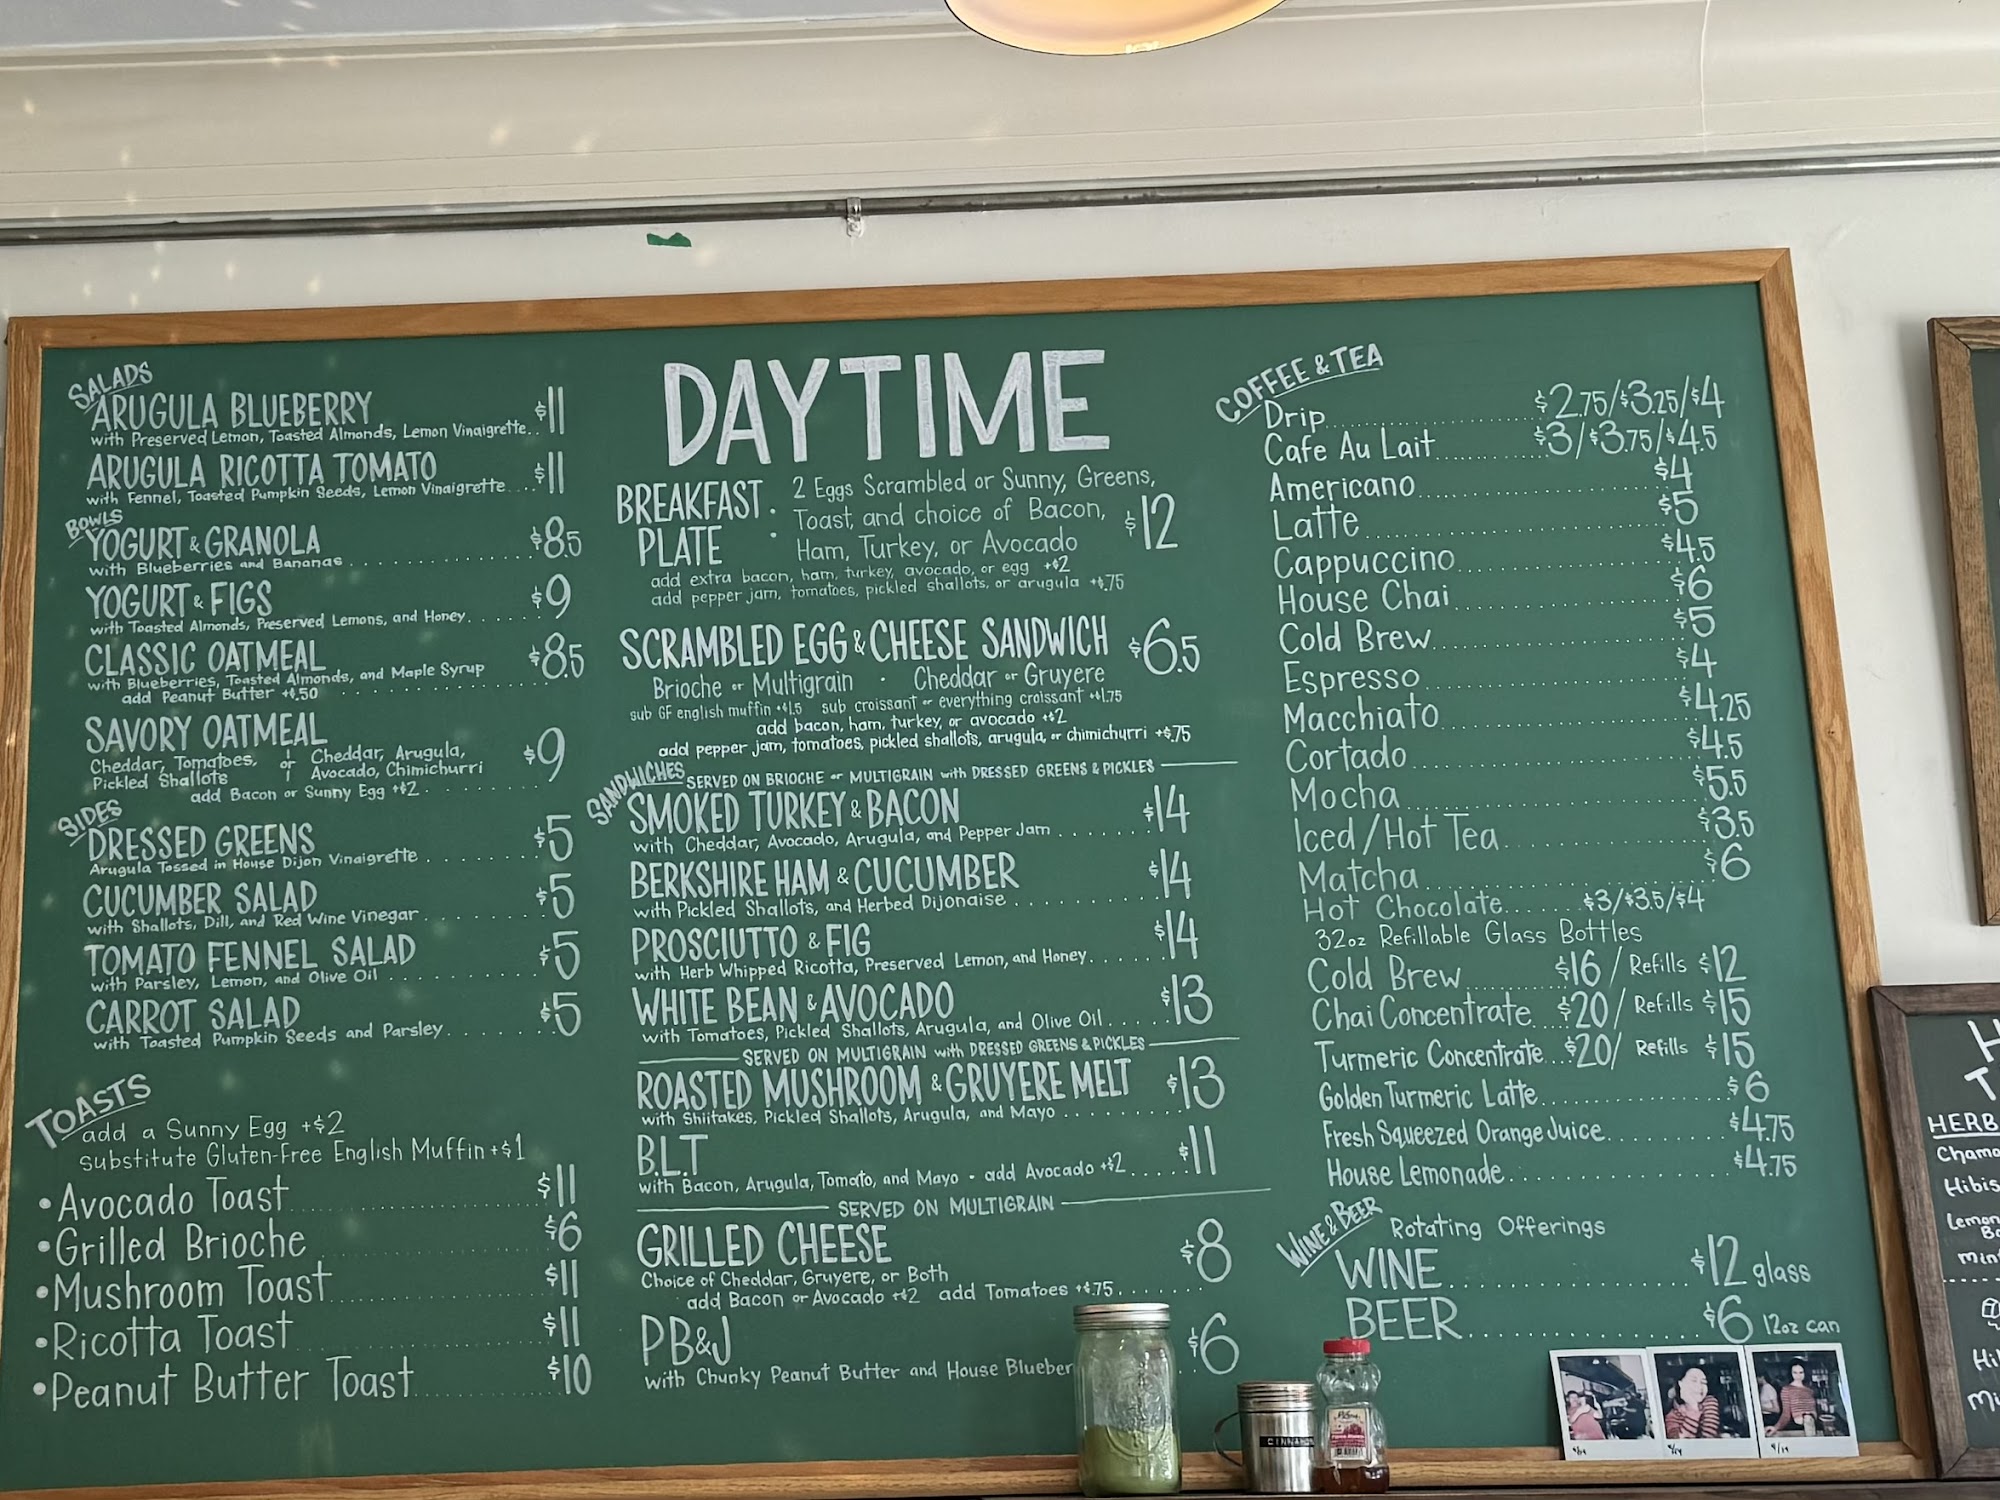 SALADS
ARUGULA BLUEBERRY $11
with Preserved Lemon, Toasted Almonds, Lemon Vinaigrette
ARUGULA RICOTTA TOMATO $11
with Fennel, Toasted Pumpkin Seeds, Lemon Vinaigrette
BOWLS
YOGURT & GRANOLA $8.5
with Blueberries and Bananas
YOGURT & FIGS $9
with Toasted Almonds, Preserved Lemons, and Honey
CLASSIC OATMEAL $8.5
with Blueberries, Toasted Almonds, and Maple Syrup
add Peanut Butter +$.50
SAVORY OATMEAL $9
Cheddar, Tomatoes, or Cheddar, Arugula,
Pickled Shallots Avocado, Chimichurri
add Bacon or Sunny Egg +$2
SIDES
DRESSED GREENS $5
Arugula Tossed in House Dijon Vinaigrette
CUCUMBER SALAD $5
with Shallots, Dill, and Red Wine Vinegar
TOMATO FENNEL SALAD $5
with Parsley, Lemon, and Olive Oil
CARROT SALAD $5
with Toasted Pumpkin Seeds and Parsley
TOASTS
add a Sunny Egg +$2
substitute Gluten-Free English Muffin +$1
• Avocado Toast $11
• Grilled Brioche $6
• Mushroom Toast $11
• Ricotta Toast $11
• Peanut Butter Toast $10
DAYTIME
BREAKFAST PLATE
2 Eggs Scrambled or Sunny, Greens,
Toast, and choice of Bacon,
Ham, Turkey, or Avocado $12
add extra bacon, ham, turkey, avocado, or egg +$2
add pepper jam, tomatoes, pickled shallots, or arugula +$.75
SCRAMBLED EGG & CHEESE SANDWICH $6.5
Brioche or Multigrain · Cheddar or Gruyere
sub GF english muffin +$1.5 sub croissant or everything croissant +$1.75
add bacon, ham, turkey, or avocado +$2
add pepper jam, tomatoes, pickled shallots, arugula, or chimichurri +$.75
SANDWICHES
SERVED ON BRIOCHE or MULTIGRAIN with DRESSED GREENS & PICKLES
SMOKED TURKEY & BACON $14
with Cheddar, Avocado, Arugula, and Pepper Jam
BERKSHIRE HAM & CUCUMBER $14
with Pickled Shallots, and Herbed Dijonaise
PROSCIUTTO & FIG $14
with Herb Whipped Ricotta, Preserved Lemon, and Honey
WHITE BEAN & AVOCADO $13
with Tomatoes, Pickled Shallots, Arugula, and Olive Oil
SERVED ON MULTIGRAIN with DRESSED GREENS & PICKLES
ROASTED MUSHROOM & GRUYERE MELT $13
with Shiitakes, Pickled Shallots, Arugula, and Mayo
B.L.T $11
with Bacon, Arugula, Tomato, and Mayo · add Avocado +$2
SERVED ON MULTIGRAIN
GRILLED CHEESE $8
Choice of Cheddar, Gruyere, or Both
add Bacon or Avocado +$2 add Tomatoes +$.75
PB&J $6
with Chunky Peanut Butter and House Blueber
COFFEE & TEA
Drip $2.75/$3.25/$4
Cafe Au Lait $3/$3.75/$4.5
Americano $4
Latte $5
Cappuccino $4.5
House Chai $6
Cold Brew $5
Espresso $4
Macchiato $4.25
Cortado $4.5
Mocha $5.5
Iced/Hot Tea $3.5
Matcha $6
Hot Chocolate $3/$3.5/$4
32oz Refillable Glass Bottles
Cold Brew $16 / Refills $12
Chai Concentrate $20/ Refills $15
Turmeric Concentrate $20/ Refills $15
Golden Turmeric Latte $6
Fresh Squeezed Orange Juice $4.75
House Lemonade $4.75
WINE & BEER
Rotating Offerings
WINE $12 glass
BEER $6 12oz can
CINNAMON
9/14
9/14
9/14
H
T
HERB
Chamo
Hibis
Lemon
Ba
Mint
Hi
Mi